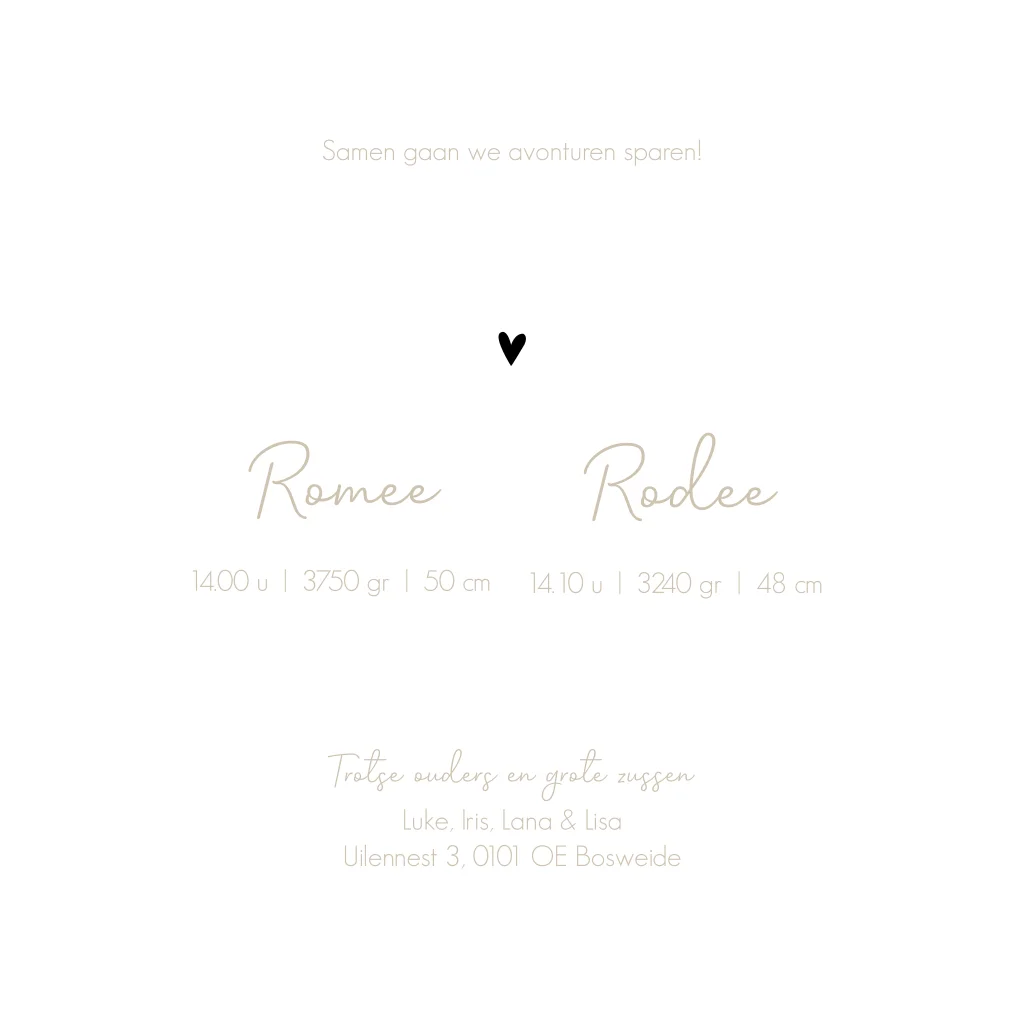 Samen gaan we avonturen sparen!
Romee Rodee
14.00 u | 3750 gr | 50 cm 14.10 u | 3240 gr | 48 cm
Trotse ouders en grote zussen
Luke, Iris, Lana & Lisa
Uilennest 3, 0101 OE Bosweide